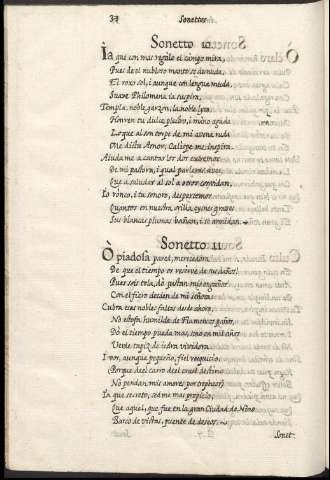 37
Sonettos
Sonetto 10.
Ia que con mas regalo el campo mira,
Pues de el nubloso manto se desnuda,
El roxo sol, i aunque con lengua muda,
Suave Philomena ia suspira,
Templa, noble garzon, la noble lyra,
Honren tu dulce plectro, i mano aguda
Lo que al son torpe de mi avena ruda
Me dicta Amor, Caliope me inspira.
Aiudame a cantar los dos extremos
De mi pastora, i qual parleras aves,
Que a saludar al sol a otros convidan,
Io ronco, i tu sonoro, despertemos
Quantos en nuestra orilla cisnes graves
Sus blancas plumas bañan, i se anidan.
Sonetto 11.
O piadosa pared, merecedora
De que el tiempo os reserve de sus daños!
Pues sois tela, dò justan mis engaños
Con el fiero desden de mi señora.
Cubra esas nobles faltas desde ahora,
No estofa humilde de Flamencos paños,
Dò el tiempo puede mas, sino en mil años
Verde tapiz de iedra vividora.
I vos, aunque pequeño, fiel resquicio,
(Porque del carro del cruel destino
No pendan mis amores por trophaeos)
Ia que secreto, sedme mas propicio,
Que aquel, que fue en la gran Ciudad de Nino
Barco de vistas, puente de deseos.
Sonet-